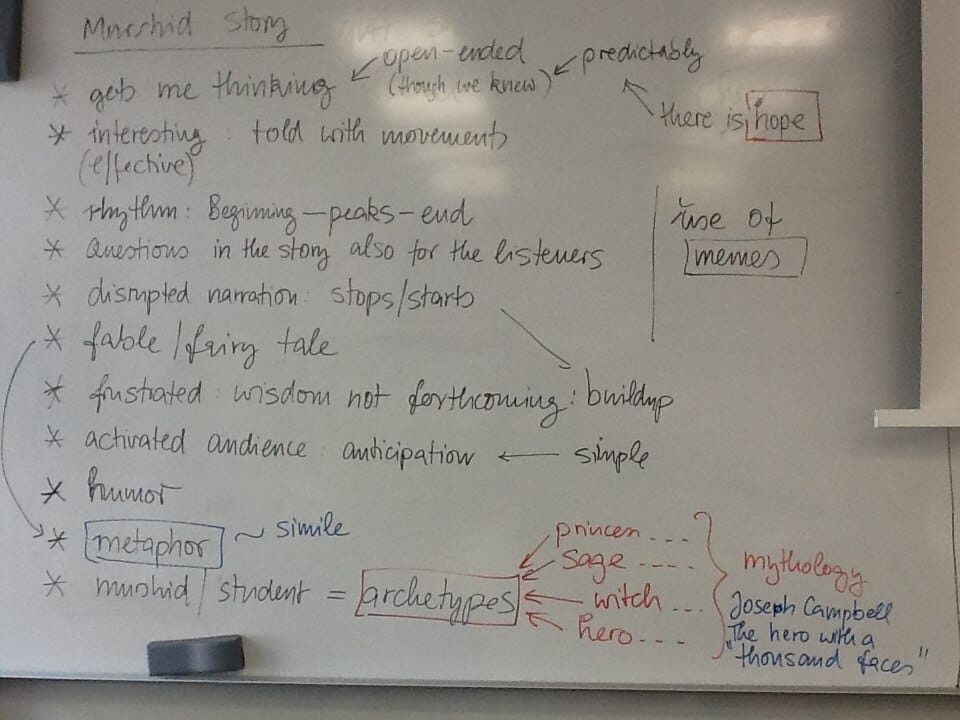 Murshid Story
* gets me thinking ← open-ended (though we knew) ← predictably
there is hope
* interesting : told with movements
(effective)
* rhythm : Beginning – peaks – end
* Questions in the story also for the listeners
use of
memes
* disrupted narration : stops/starts
* fable / fairy tale
* frustrated : wisdom not forthcoming : buildup
* activated audience : anticipation ← simple
* humor
* metaphor ~ simile
* murshid / student = archetypes
princess ...
sage ....
witch ...
hero ...
mythology
Joseph Campbell
"The hero with a
thousand faces"